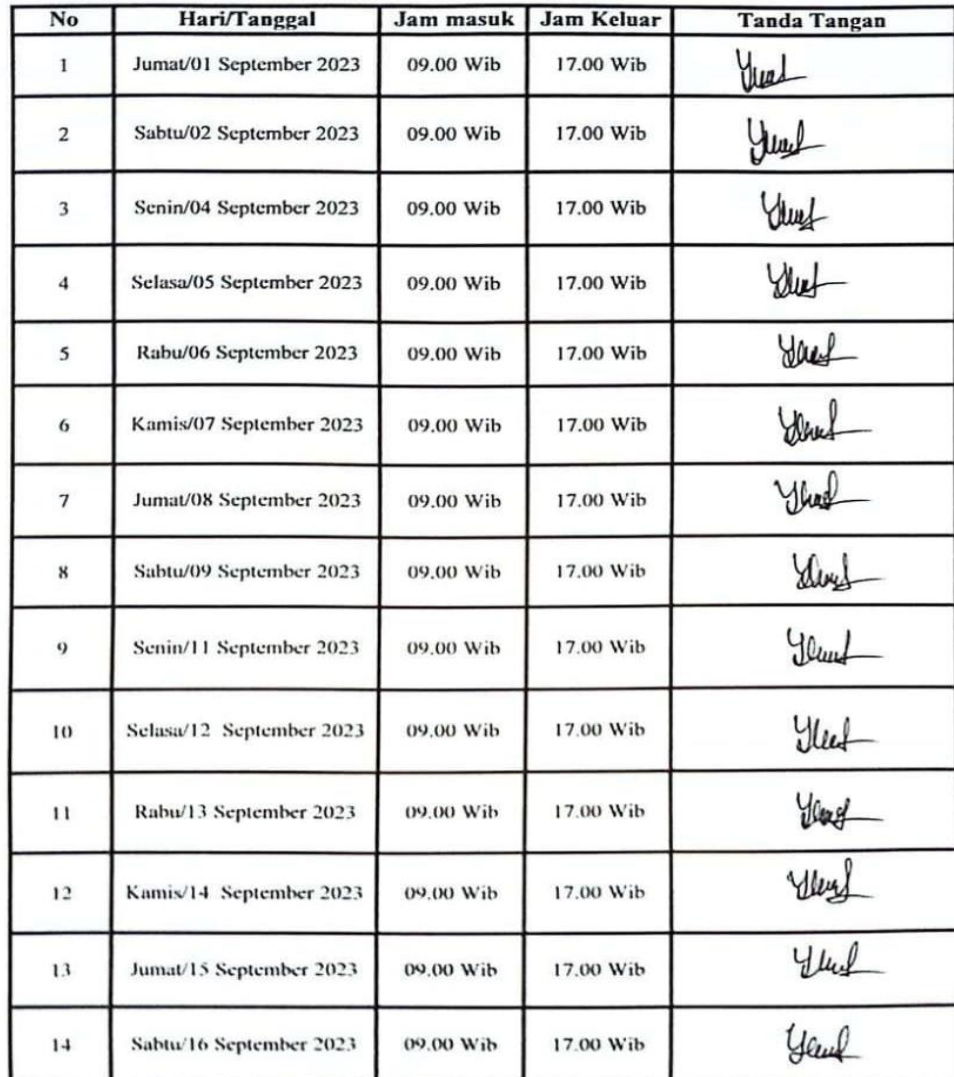 No Hari/Tanggal Jam masuk Jam Keluar Tanda Tangan
1 Jumat/01 September 2023 09.00 Wib 17.00 Wib
2 Sabtu/02 September 2023 09.00 Wib 17.00 Wib
3 Senin/04 September 2023 09.00 Wib 17.00 Wib
4 Selasa/05 September 2023 09.00 Wib 17.00 Wib
5 Rabu/06 September 2023 09.00 Wib 17.00 Wib
6 Kamis/07 September 2023 09.00 Wib 17.00 Wib
7 Jumat/08 September 2023 09.00 Wib 17.00 Wib
8 Sabtu/09 September 2023 09.00 Wib 17.00 Wib
9 Senin/11 September 2023 09.00 Wib 17.00 Wib
10 Selasa/12 September 2023 09.00 Wib 17.00 Wib
11 Rabu/13 September 2023 09.00 Wib 17.00 Wib
12 Kamis/14 September 2023 09.00 Wib 17.00 Wib
13 Jumat/15 September 2023 09.00 Wib 17.00 Wib
14 Sabtu/16 September 2023 09.00 Wib 17.00 Wib